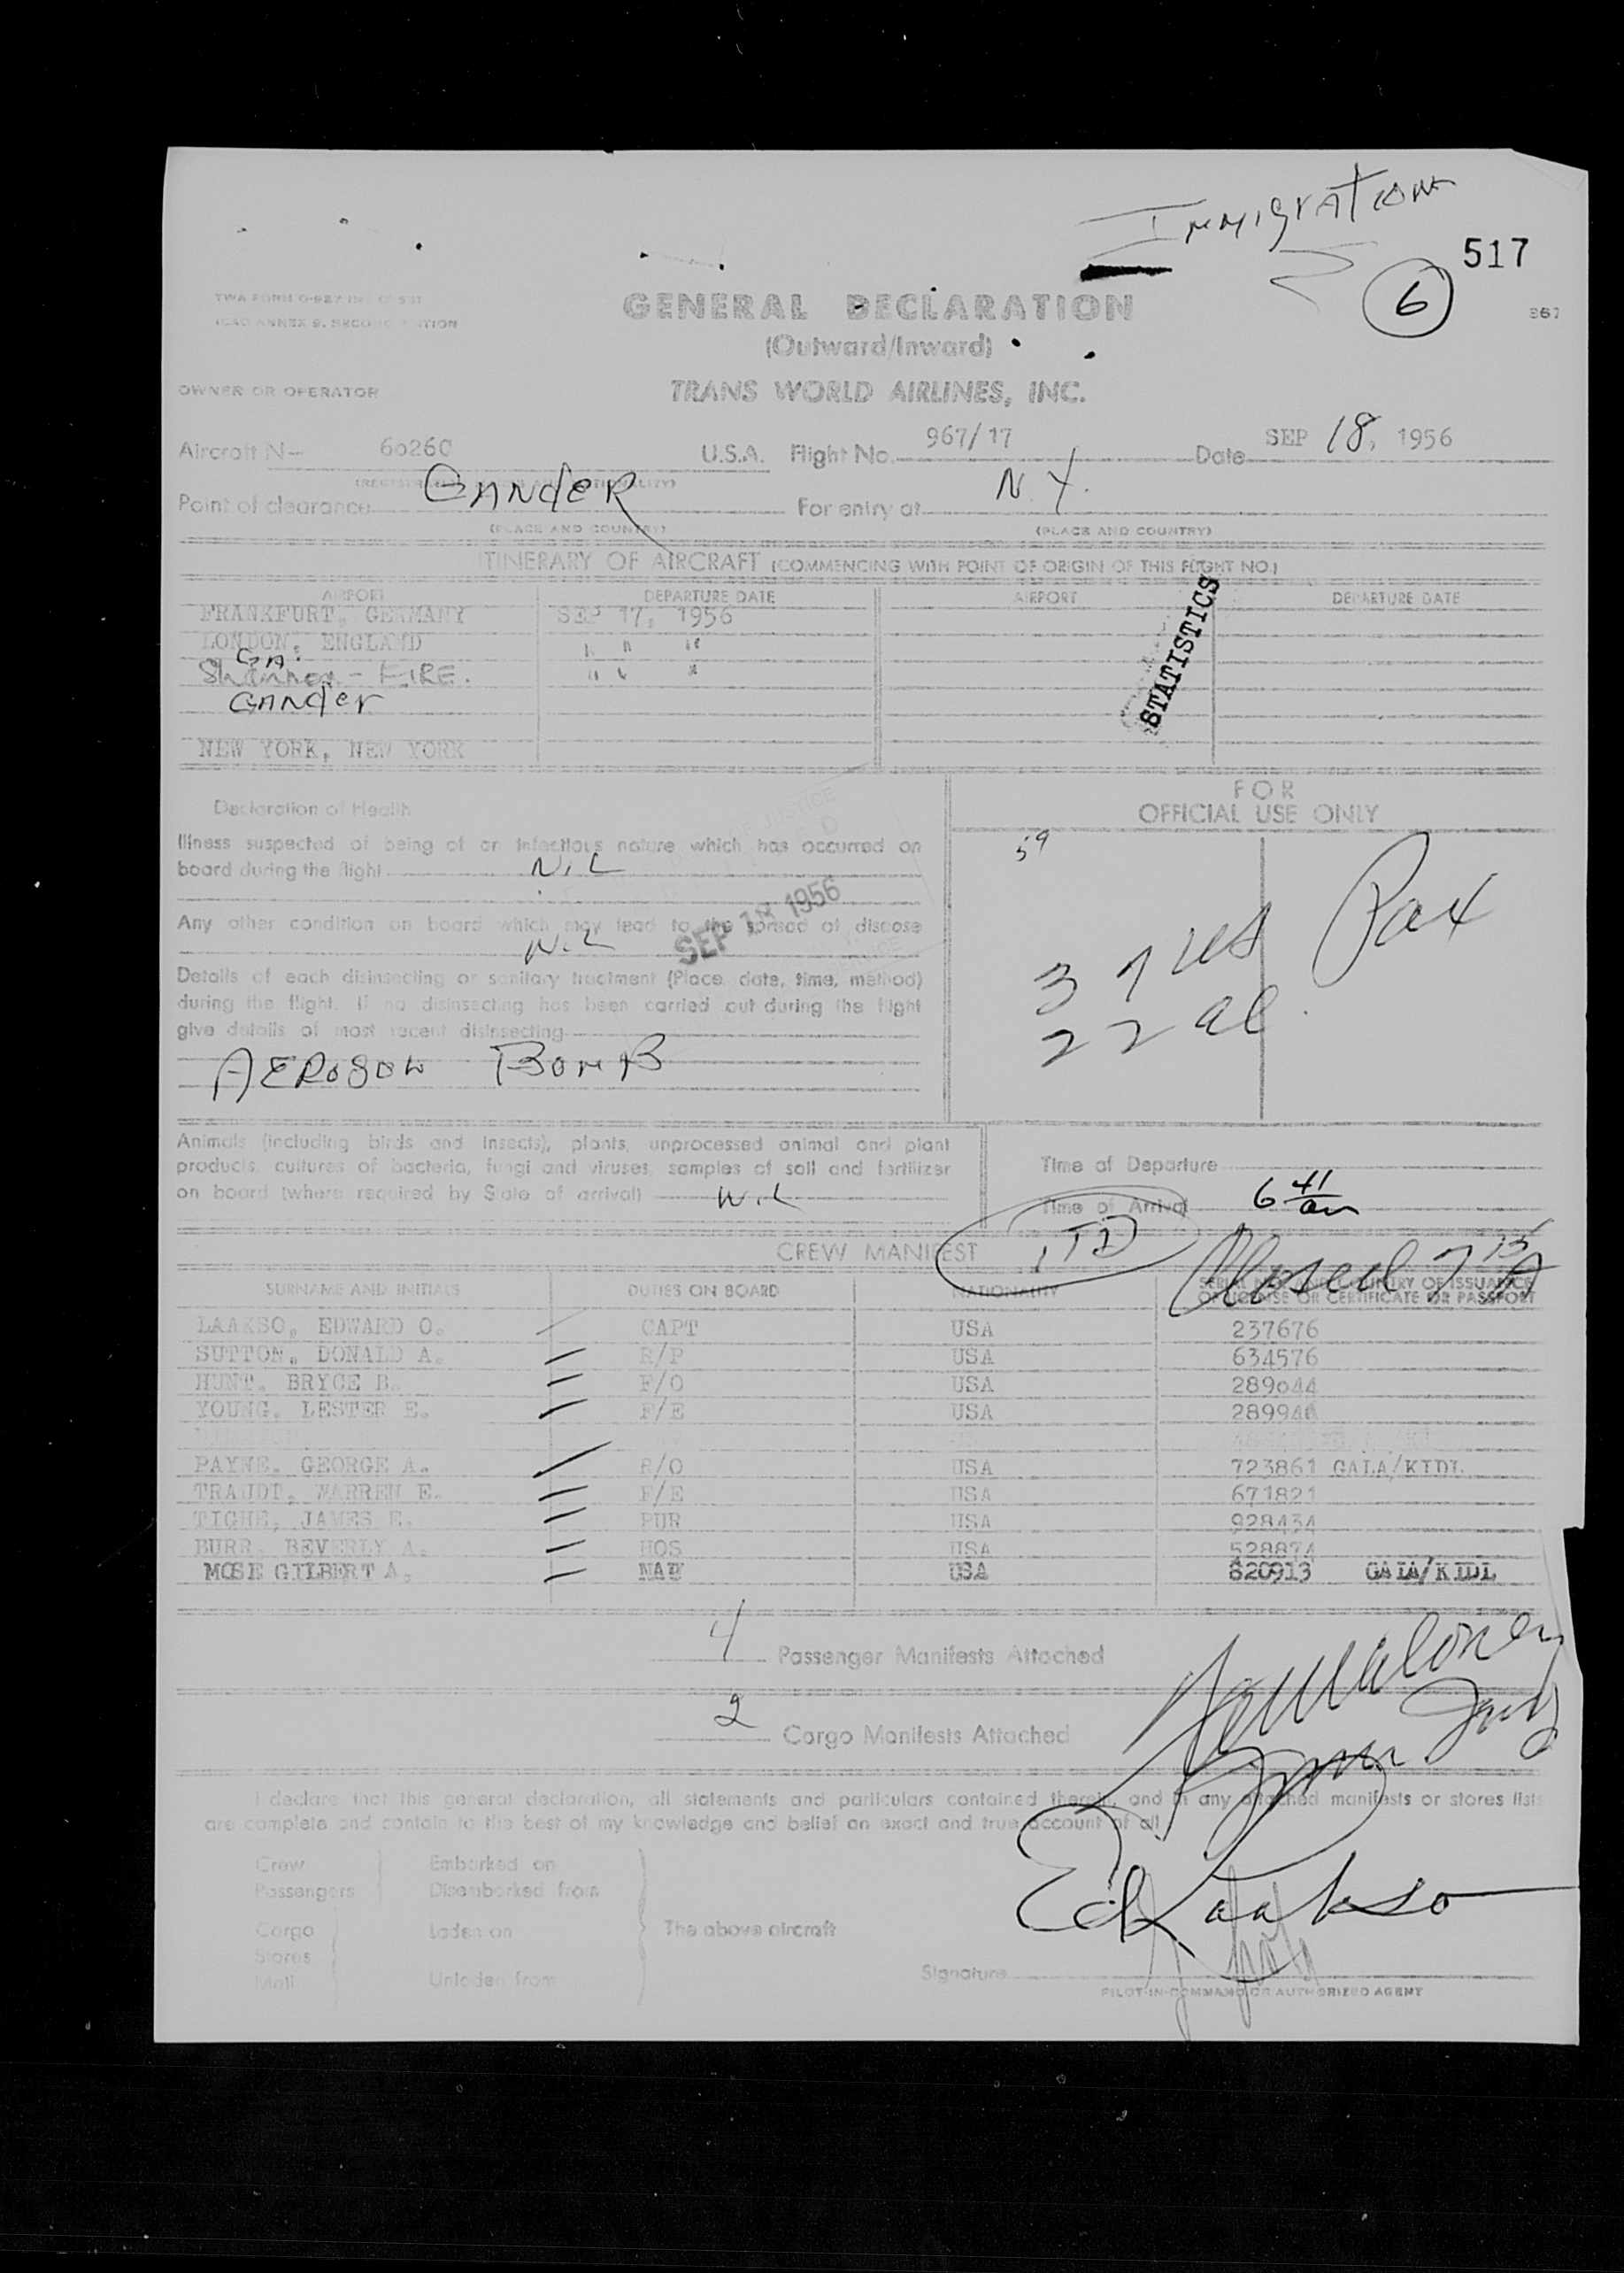 Immigration
517
6
TWA FORM O-967
ICAO ANNEX 9, SECOND EDITION
967
GENERAL DECLARATION
(Outward/Inward)
OWNER OR OPERATOR TRANS WORLD AIRLINES, INC.
Aircraft N- 60260 U.S.A. Flight No. 967/17 Date SEP 18, 1956
Point of clearance GANdER For entry at N.Y.
(PLACE AND COUNTRY) (PLACE AND COUNTRY)
ITINERARY OF AIRCRAFT (COMMENCING WITH POINT OF ORIGIN OF THIS FLIGHT NO.)
AIRPORT DEPARTURE DATE AIRPORT DEPARTURE DATE
FRANKFURT, GERMANY SEP 17, 1956
LONDON, ENGLAND " " "
Shannon - EIRE. " " "
GANder
NEW YORK, NEW YORK
STATISTICS
Declaration of Health
Illness suspected of being of an infectious nature which has occurred on
board during the flight NiL
Any other condition on board which may lead to the spread of disease
NiL
SEP 18 1956
Details of each disinsecting or sanitary treatment (Place, date, time, method)
during the flight. If no disinsecting has been carried out during the flight
give details of most recent disinsecting
AEROSOL BOMB
FOR
OFFICIAL USE ONLY
59
Pax
37 us
22 al
Animals (including birds and insects), plants, unprocessed animal and plant
products, cultures of bacteria, fungi and viruses, samples of soil and fertilizer
on board (where required by State of arrival) NiL
Time of Departure
Time of Arrival 6 41 am
1 TD
Closed 7 15 A
CREW MANIFEST
SURNAME AND INITIALS DUTIES ON BOARD NATIONALITY SERIAL NO. AND COUNTRY OF ISSUANCE
OF LICENSE OR CERTIFICATE OR PASSPORT
LAAKSO, EDWARD O. CAPT USA 237676
SUTTON, DONALD A. R/P USA 634576
HUNT, BRYCE B. F/O USA 289044
YOUNG, LESTER E. F/E USA 289946
PAYNE, GEORGE A. R/O USA 723861 GALA/KIDL
TRAUDT, WARREN E. F/E USA 671821
TIGHE, JAMES E. PUR USA 928434
BURR, BEVERLY A. HOS USA 528874
MOSE GILBERT A. NAV USA 820913 GAIA/KIDL
4 Passenger Manifests Attached
2 Cargo Manifests Attached
I declare that this general declaration, all statements and particulars contained therein, and in any attached manifests or stores lists
are complete and contain to the best of my knowledge and belief an exact and true account of all
Crew Embarked on
Passengers Disembarked from
Cargo Laden on The above aircraft
Stores
Mail Unladen from
Ed Laakso
Signature
PILOT-IN-COMMAND OR AUTHORIZED AGENT